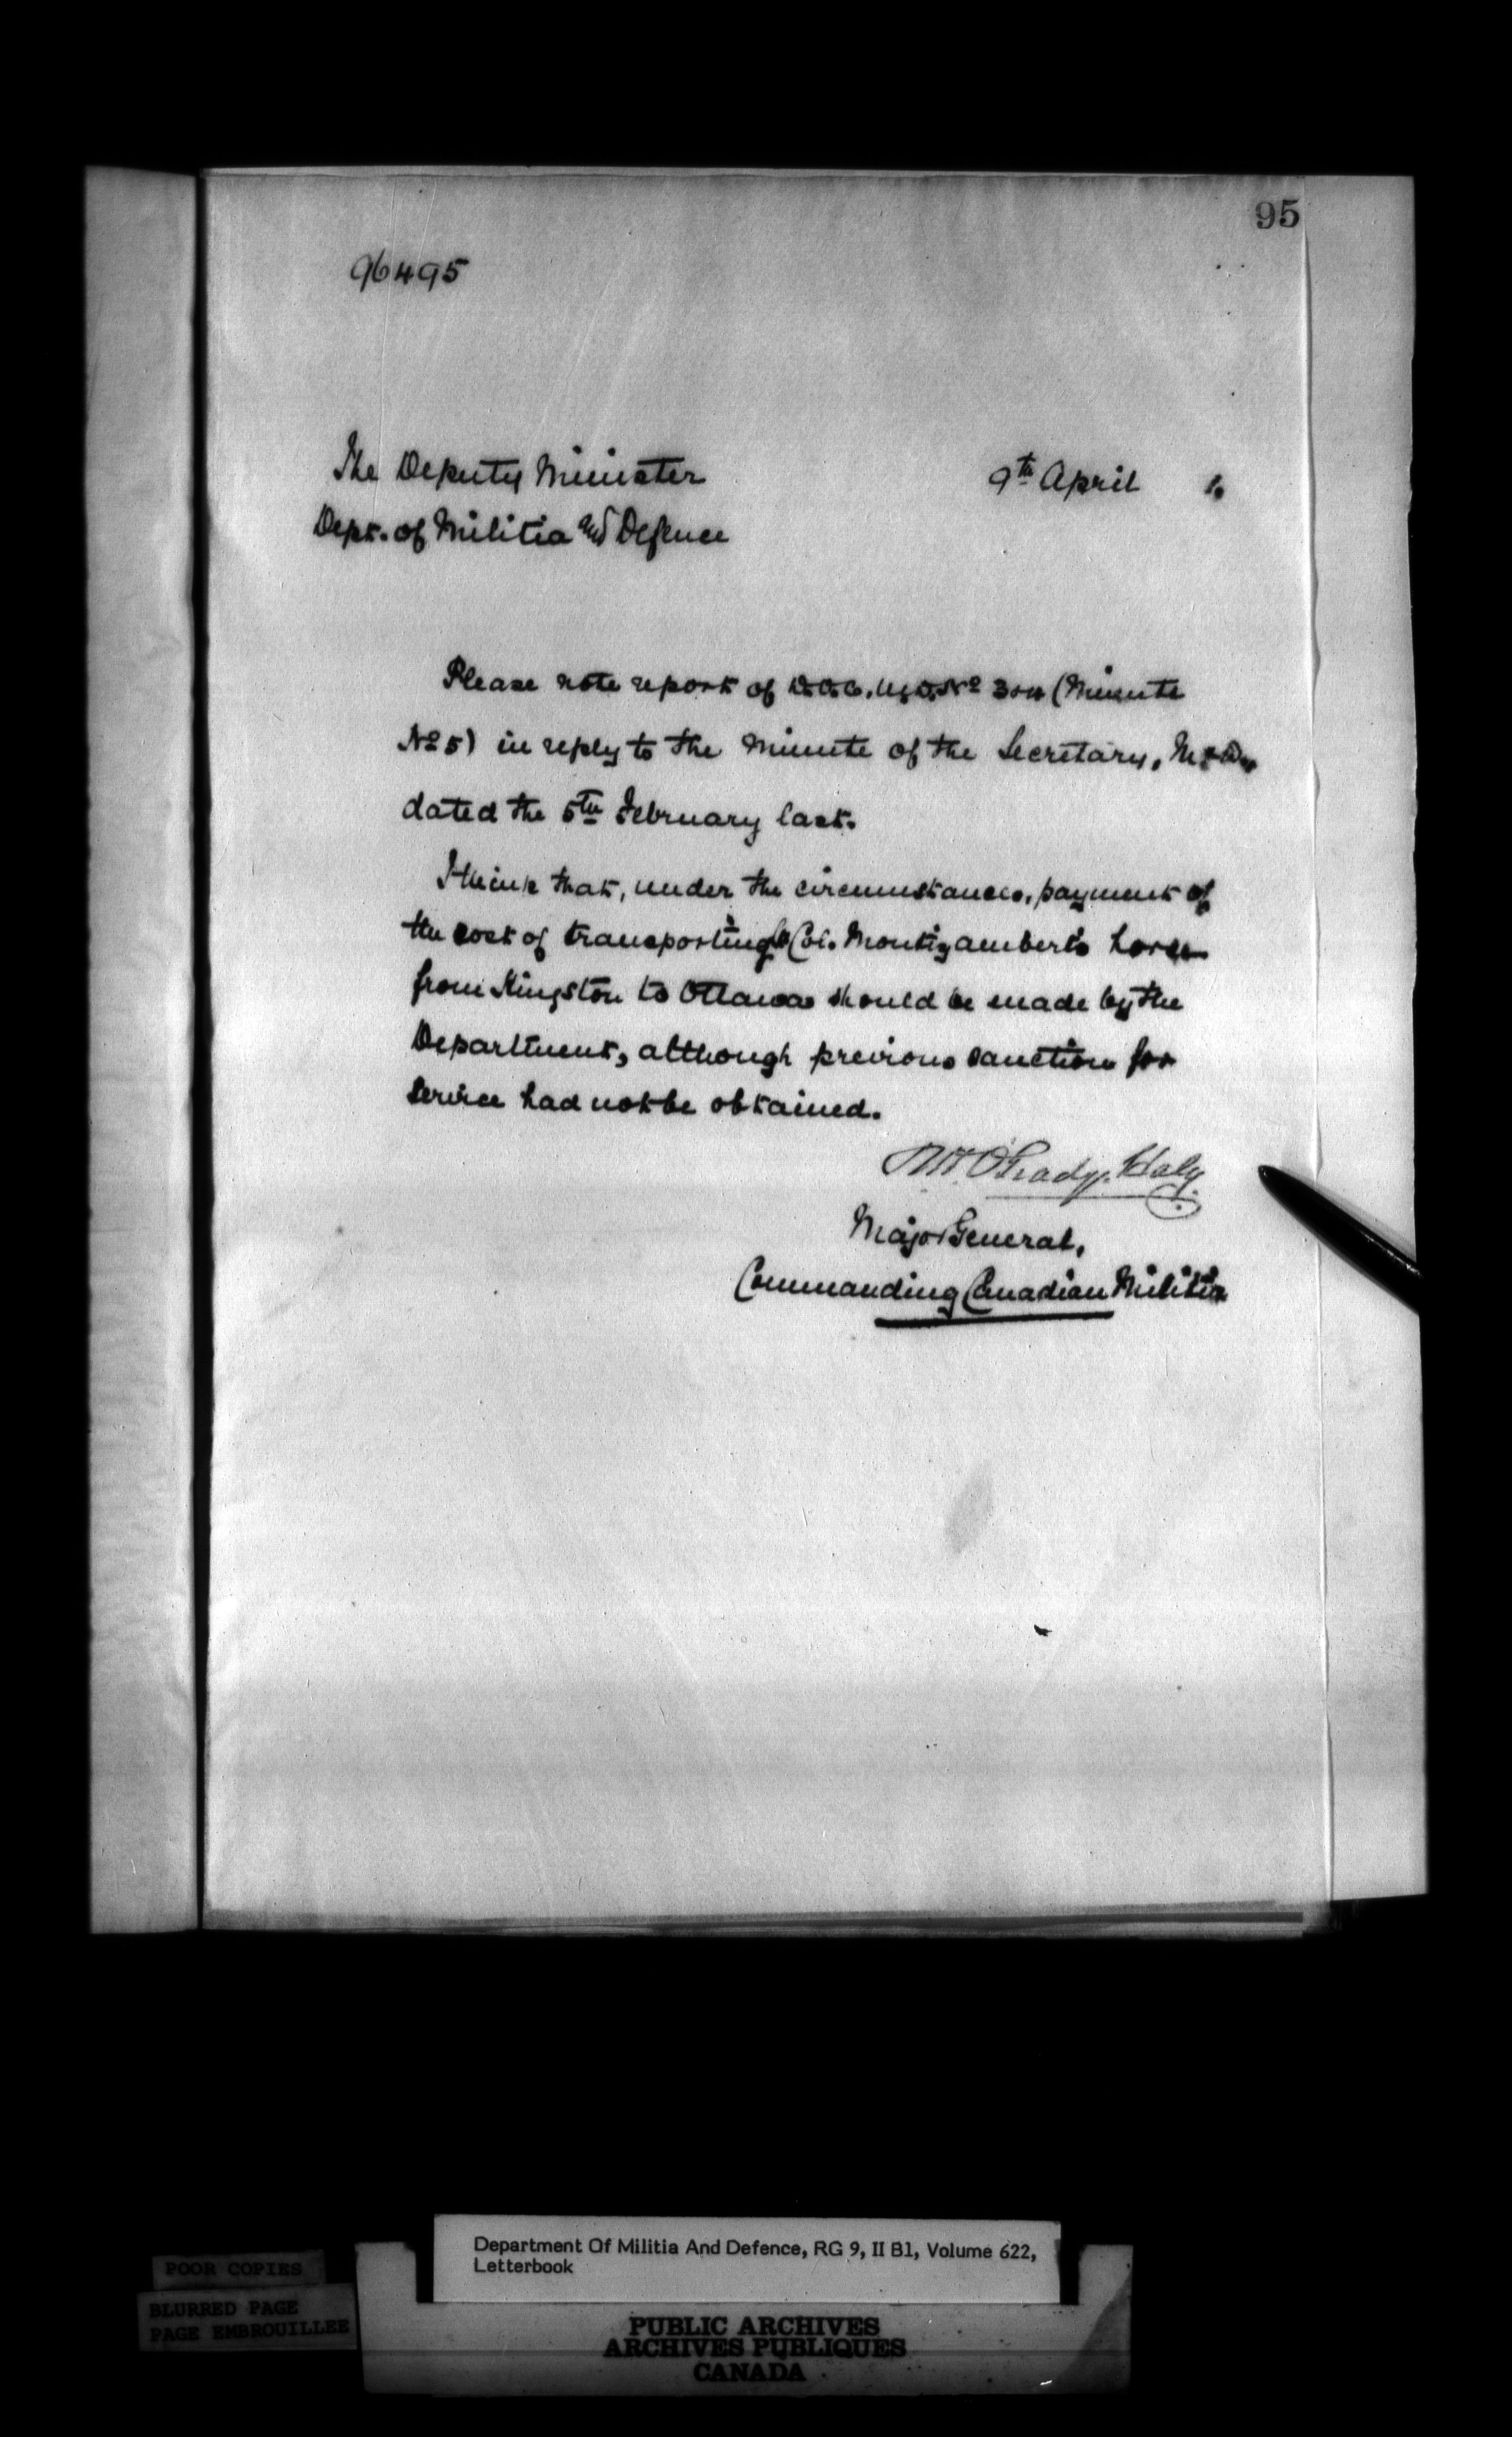 95
96495
The Deputy Minister
9th April 1.
Dept. of Militia and Defence
Please note report of D.O.C. M.D. No 3&4 (Minute
No 5) in reply to the Minute of the Secretary, M&D.
dated the 5th February last.
I think that, under the circumstances, payment of
the cost of transporting Col. Montizambert's horse
from Kingston to Ottawa should be made by the
Department, although previous sanction for
service had not be obtained.
O'Grady Haly
Major General,
Commanding Canadian Militia
Department Of Militia And Defence, RG 9, II B1, Volume 622,
Letterbook
POOR COPIES
BLURRED PAGE
PAGE EMBROUILLEE
PUBLIC ARCHIVES
ARCHIVES PUBLIQUES
CANADA